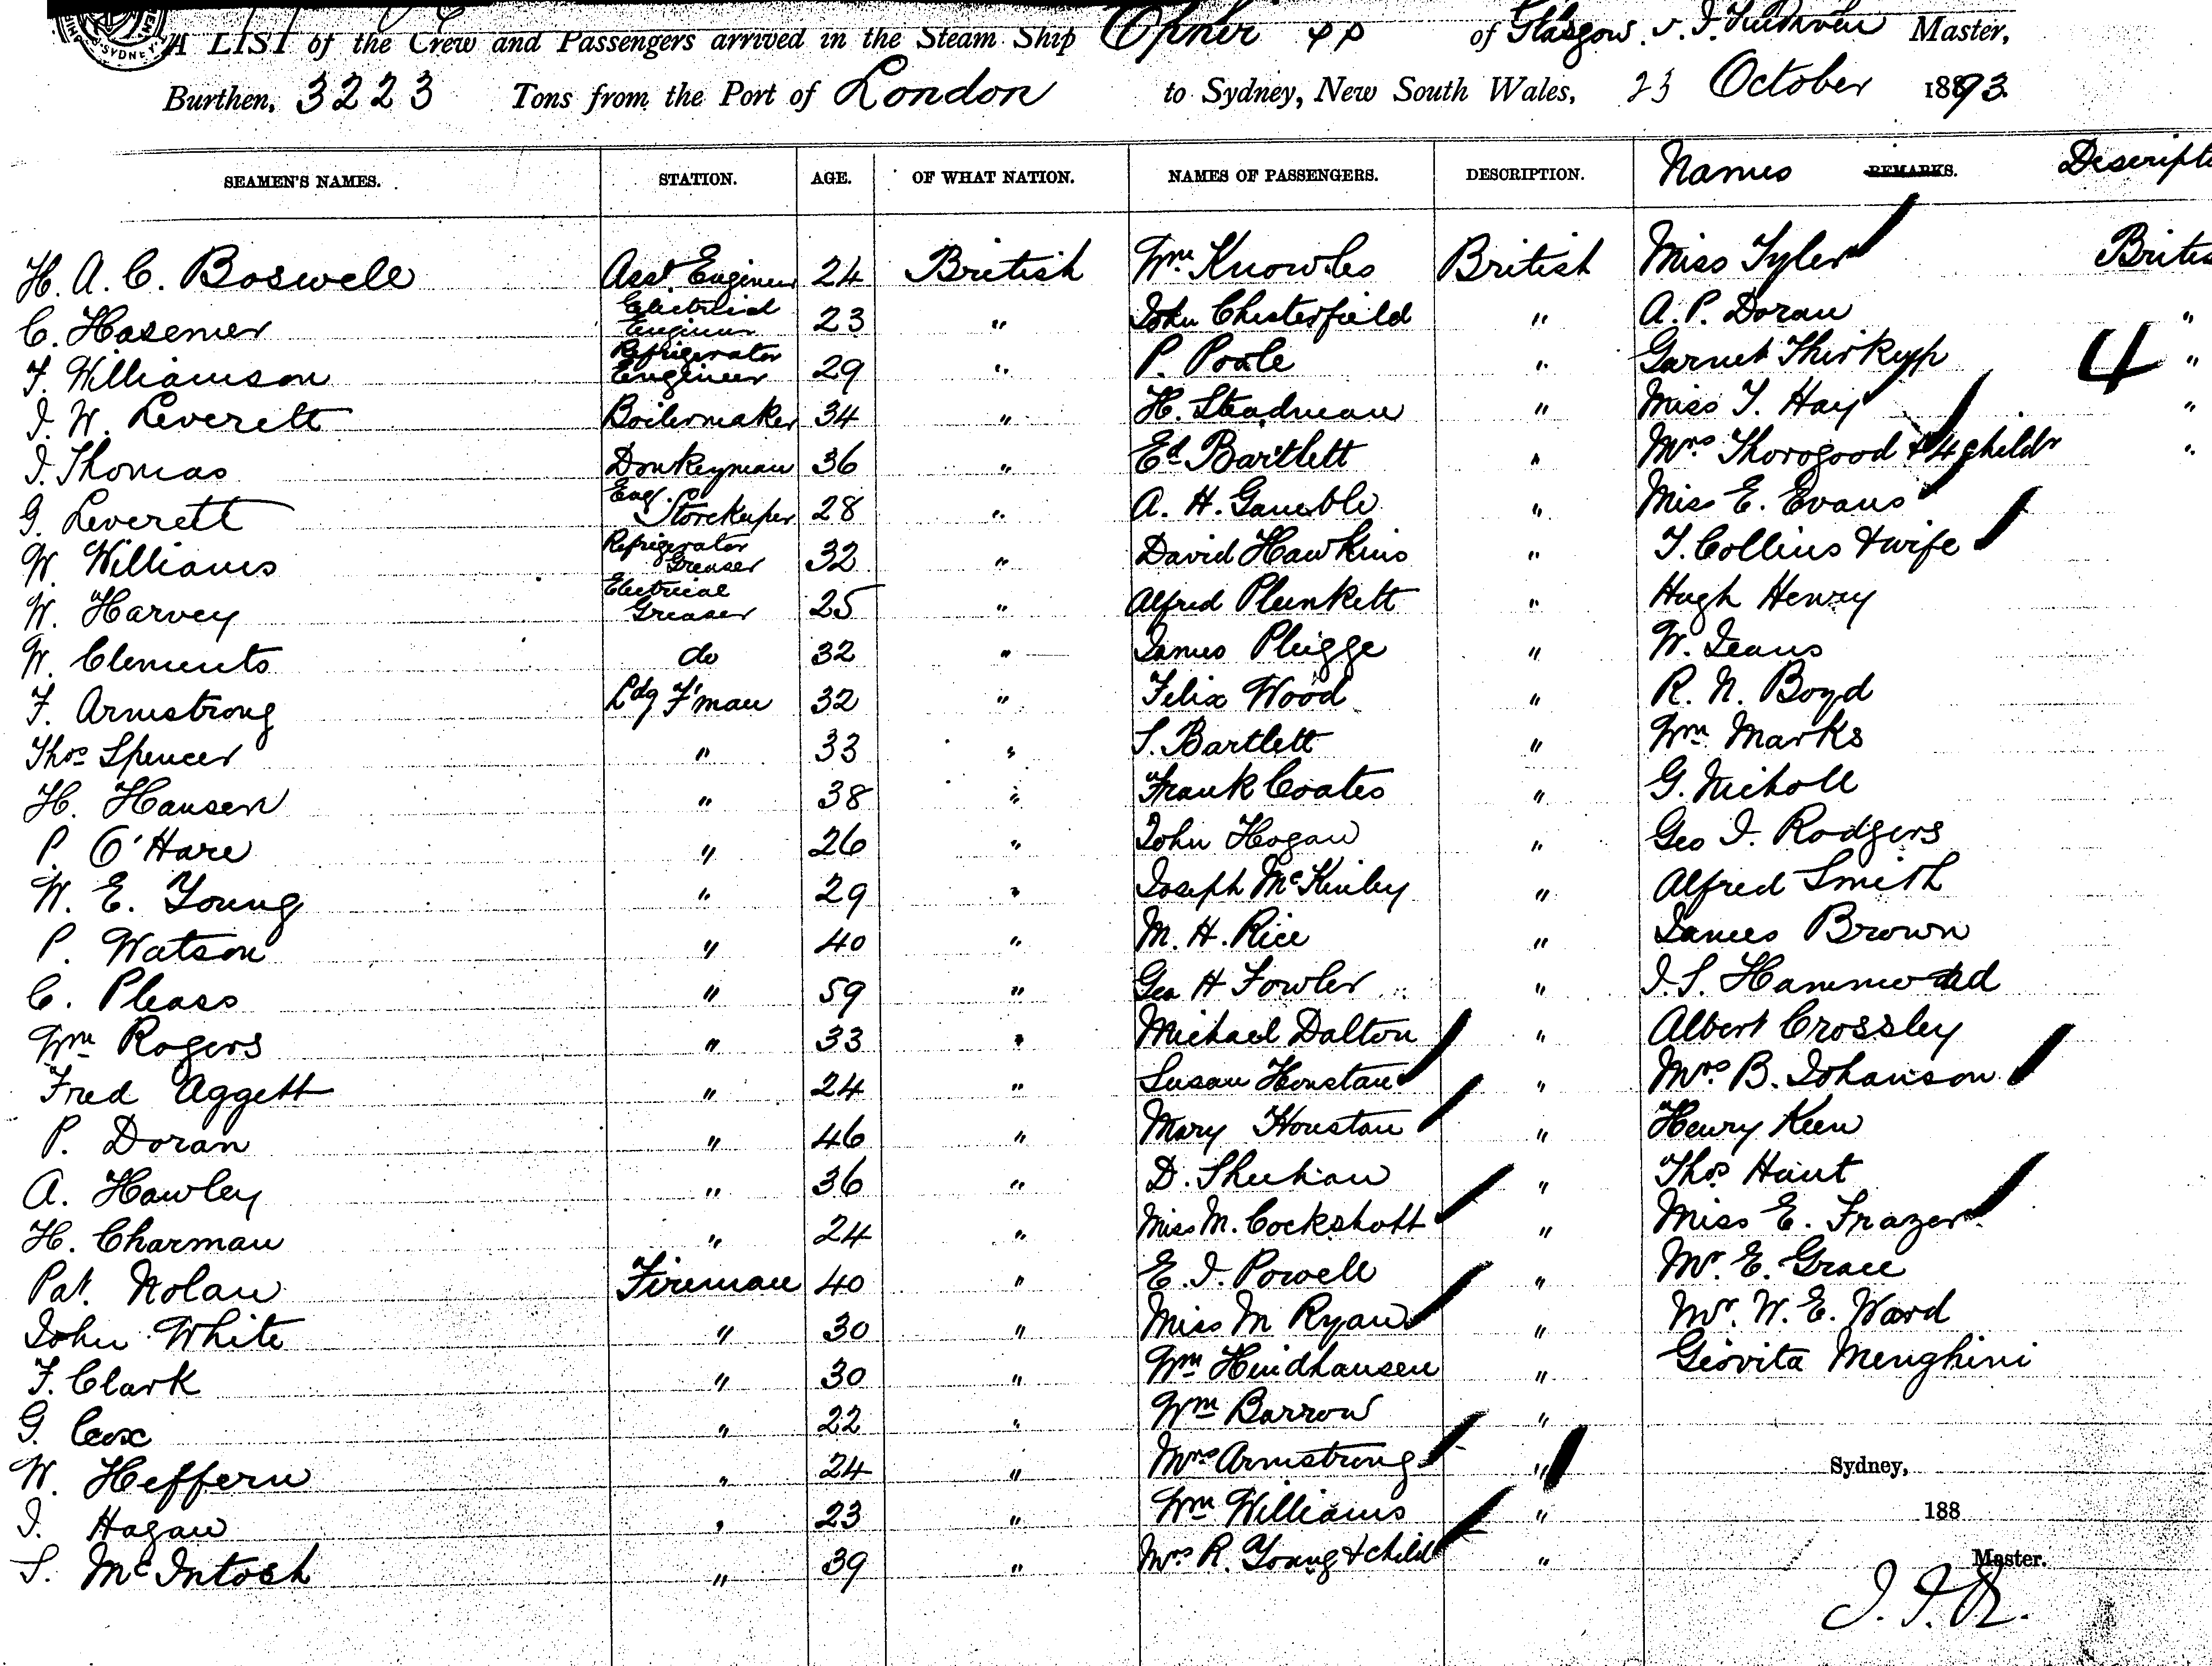 A LIST of the Crew and Passengers arrived in the Steam Ship Ophir of Glasgow. Master,
Burthen, 3223 Tons from the Port of London to Sydney, New South Wales, 23 October 1893.
SEAMEN'S NAMES. STATION. AGE. OF WHAT NATION. NAMES OF PASSENGERS. DESCRIPTION. Names REMARKS. Descripti
H. A. C. Boswell Asst. Engineer 24 British Wm Knowles British Miss Tyler Britis
C. Hasemer Electrical Engineer 23 " John Chesterfield " A. P. Doran "
F. Williamson Refrigerator Engineer 29 " P. Poole " Garnet 4 "
J. W. Leverett Boilermaker 34 " H. Steadman " Miss T. Hay "
J. Thomas Donkeyman 36 " Ed Bartlett " Mrs Thorogood & 4 childr "
G. Leverett Eng. Storekeeper 28 " A. H. Gamble " Miss E. Evans
W. Williams Refrigerator Greaser 32 " David Hawkins " T. Collins & wife
W. Harvey Electrical Greaser 25 " Alfred Plunkett " Hugh Henry
W. Clements do 32 " James Plugge " W. Jeans
F. Armstrong Ldg F'man 32 " Felix Wood " R. N. Boyd
Thos Spencer " 33 " S. Bartlett " Wm Marks
H. Hansen " 38 " Frank Coates " G. Nicholl
P. O'Hare " 26 " John Hogan " Geo J. Rodgers
W. E. Young " 29 " Joseph McKinley " Alfred Smith
P. Watson " 40 " M. H. Rice " James Brown
C. Pleass " 59 " Geo H Fowler " J. S. Hammond
Wm Rogers " 33 " Michael Dalton " Albert Crossley
Fred Aggett " 24 " Susan Houstan " Mrs B. Johanson
P. Doran " 46 " Mary Houstan " Henry Keen
A. Hawley " 36 " D. Sheehan " Thos Hunt
H. Charman " 24 " Miss M. Cockshott " Miss E. Frazer
Pat. Nolan Fireman 40 " E. J. Powell " Mr. E. Grace
John White " 30 " Miss M Ryan " Mr. W. E. Ward
F. Clark " 30 " Wm Hindhausen " Giovita Menghini
G. Cox " 22 " Wm Barrow "
W. Heffern " 24 " Mrs Armstrong " Sydney,
J. Hagan " 23 " Wm Williams " 188
S. McIntosh " 39 " Mrs R. Young & child " Master.
J. F. R.